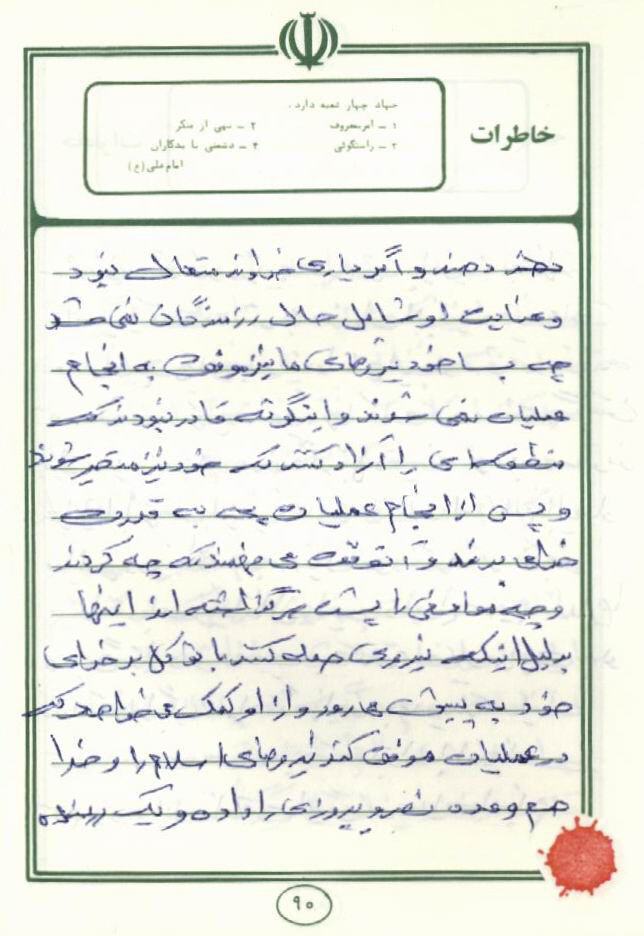 خاطرات
جهاد چهار شعبه دارد.
۱ - امربمعروف ۲ - نهی از منکر
۳ - راستگوئی ۴ - دشمنی با بدکاران
امام علی (ع)
دهند و اگر یاری خداوند متعال نبود
و عنایت او شامل حال رزمندگان نمی شد
چه بسا خود نیروهای ما نیز موفق به انجام
عملیات نمی شوند و اینگونه قادر نبودند که
منطقه ای را آزاد کنند که خود نیز متحیر شوند
و پس از انجام عملیات پی به قدرت
خدای برند و آنوقت می فهمند که چه کردند
و چه موانعی را پشت سر گذاشته اند اینها
بدلیل اینکه نیروی حمله کننده با توکل بر خدای
خود به پیش می رود و از او کمک می خواهد که
در عملیات موفق کند نیروهای اسلام را و خدا
هم وعده نصر و پیروزی را داده و یک رزمنده
۹۰